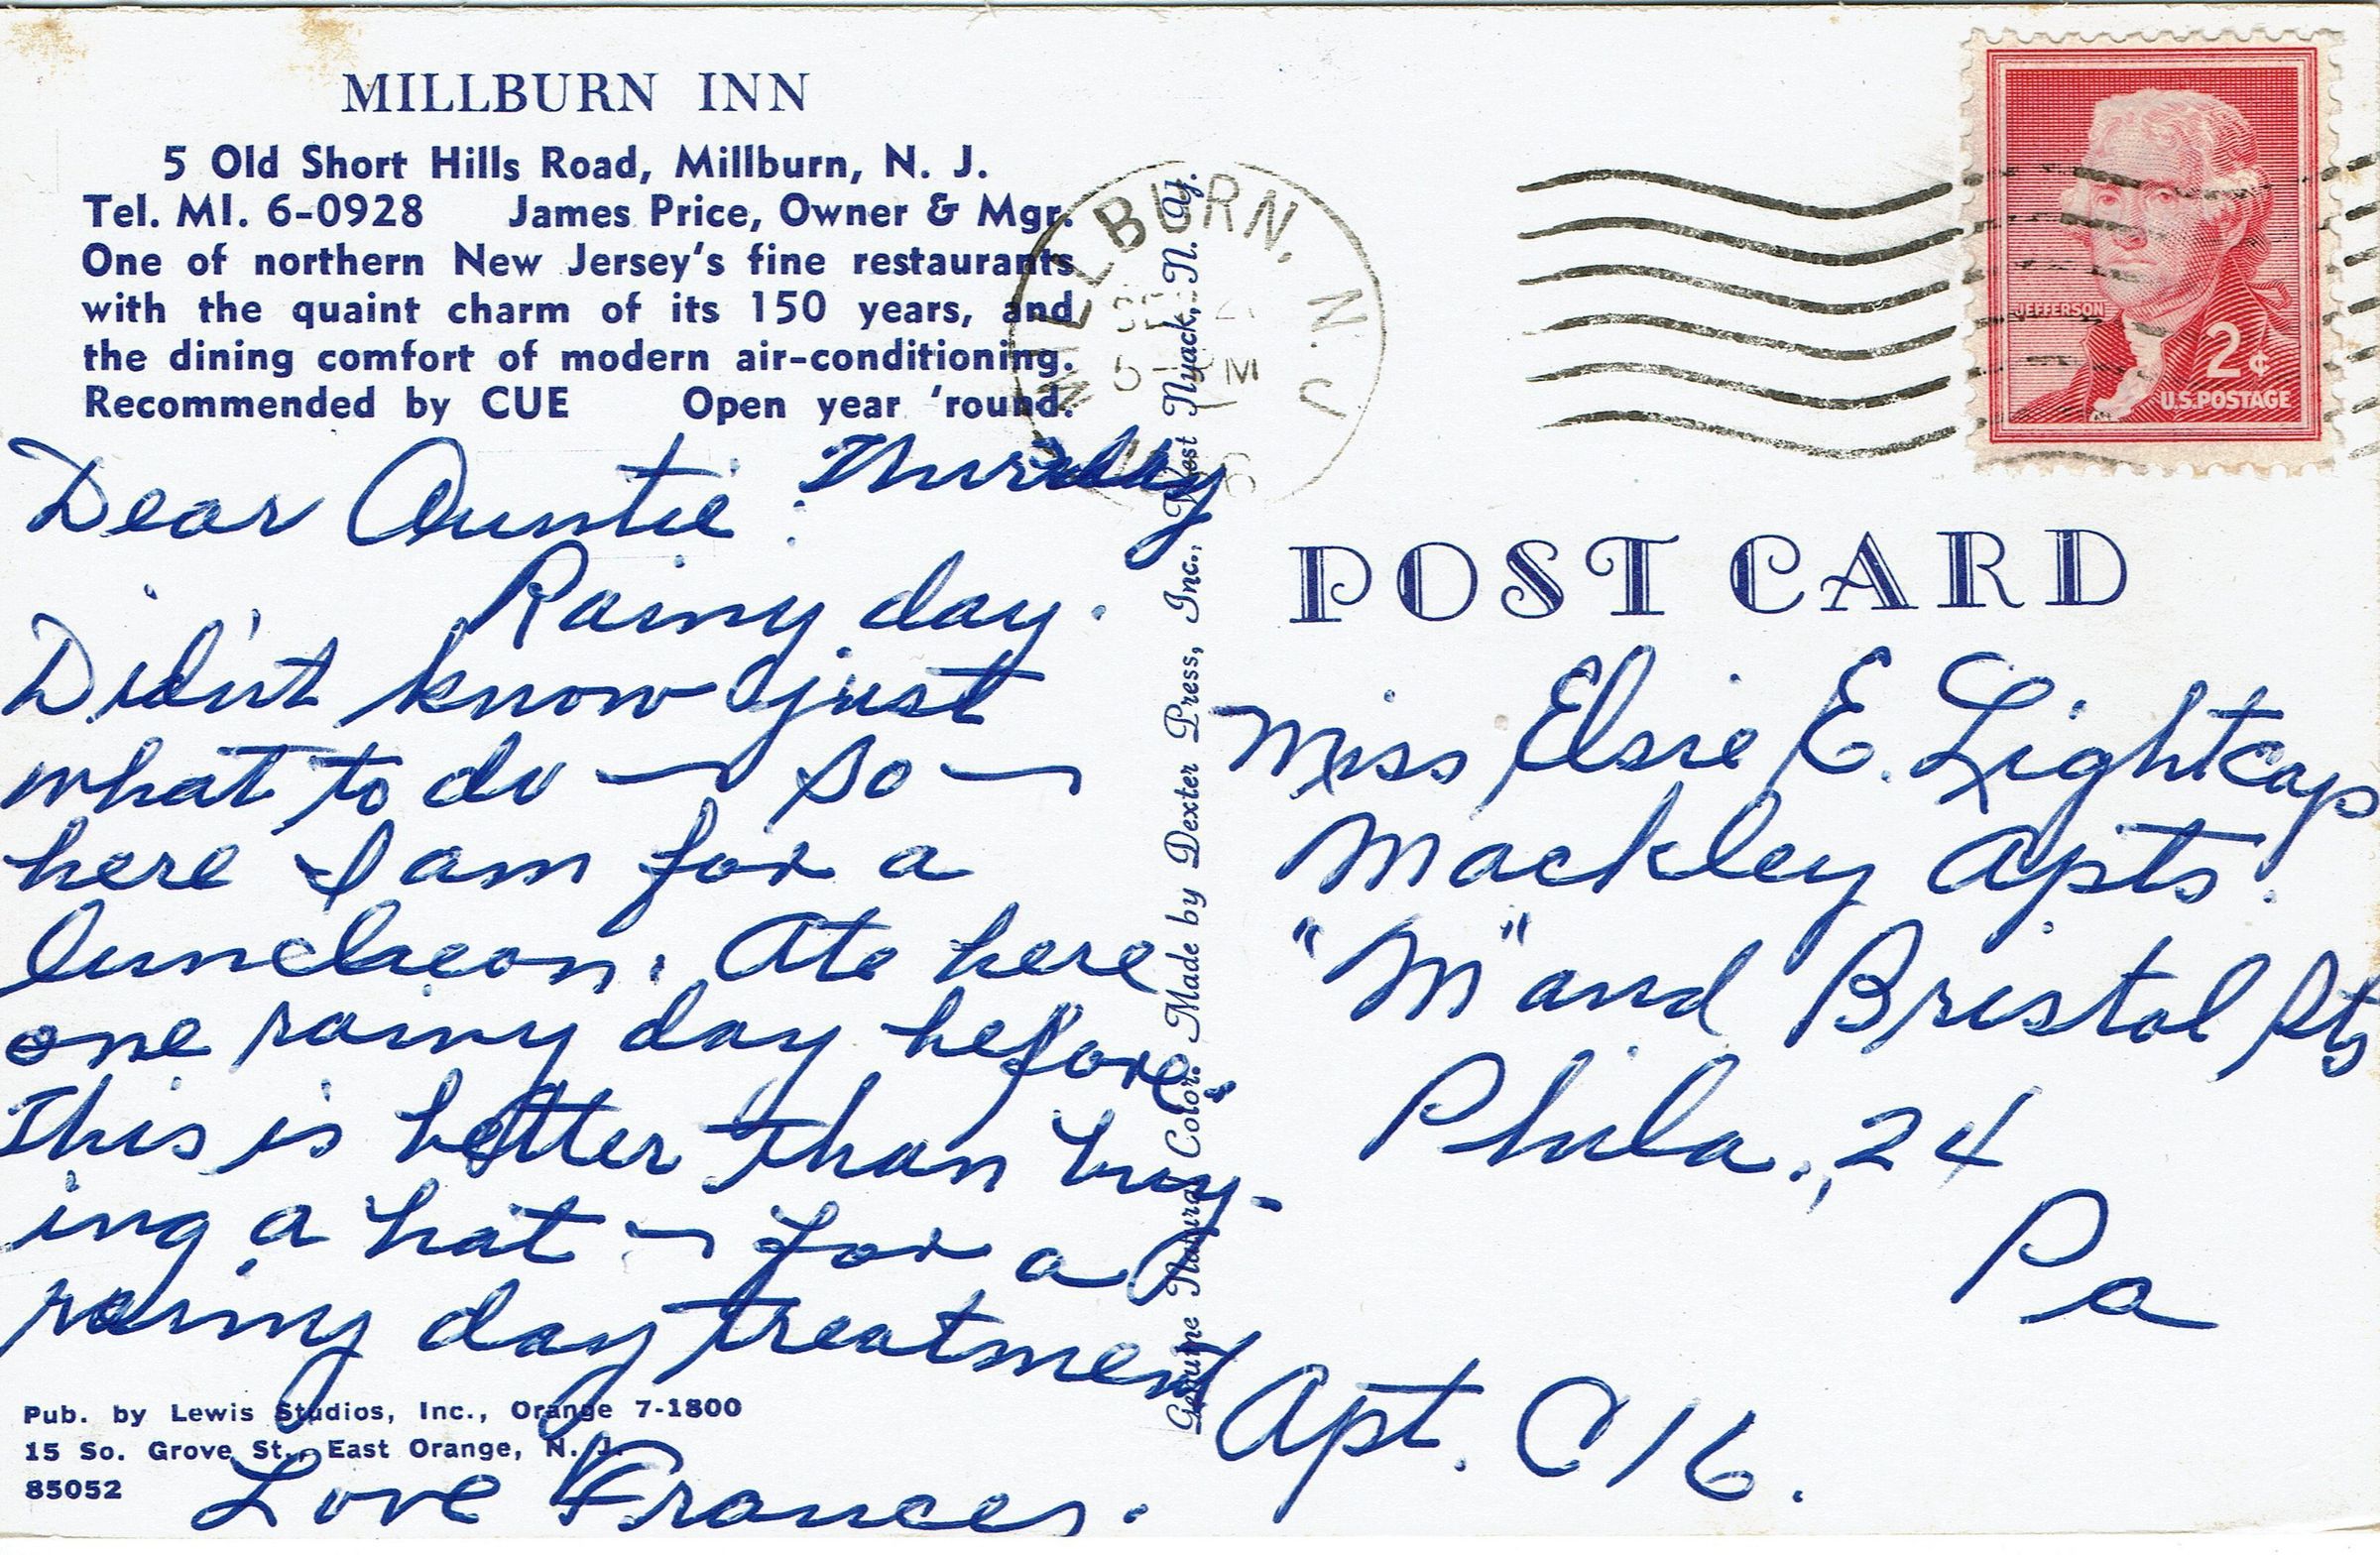 MILLBURN INN
5 Old Short Hills Road, Millburn, N. J.
Tel. MI. 6-0928 James Price, Owner & Mgr.
One of northern New Jersey's fine restaurants
with the quaint charm of its 150 years, and
the dining comfort of modern air-conditioning.
Recommended by CUE Open year 'round.
Thursday
Dear Auntie:
Rainy day.
Didn't know just
what to do — so —
here I am for a
luncheon. Ate here
one rainy day before.
This is better than buy-
ing a hat — for a
rainy day treatment
Love Frances.
Pub. by Lewis Studios, Inc., Orange 7-1800
15 So. Grove St., East Orange, N. J.
85052
Genuine Natural Color. Made by Dexter Press, Inc., West Nyack, N. Y.
MILLBURN, N. J.
5- PM
JEFFERSON
2¢
U.S. POSTAGE
POST CARD
Miss Elsie E. Lightcap
Mackley Apts.
"M" and Bristol Sts
Phila., 24
Pa
Apt. C 16.